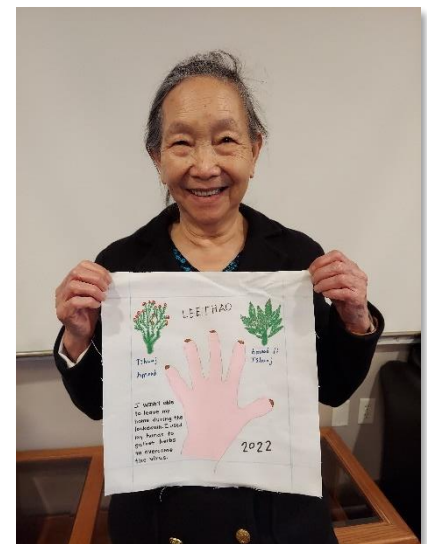 LEE THAO
Tshuaj
Hmoob
Hmoob
Tshuaj
I wasn't able
to leave my
home during the
I used
my hands to
gather herbs
to overcome
the virus.
2022